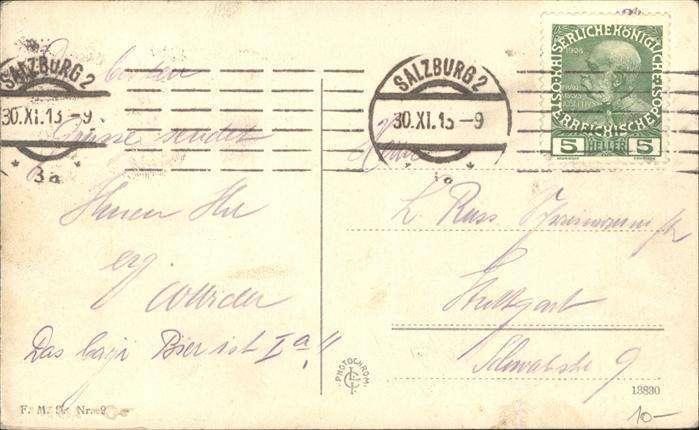 SALZBURG 2
30.XI.13-9
* 3a *
SALZBURG 2
30.XI.13-9
KAISERLICHE KÖNIGLICHE ÖSTERREICHISCHE POST
1908
5 HELLER 5
Grüsse sendet
Ihnen Ihr
Das Bier ist Ia!!
Herrn
L. Russ
Stuttgart
Schwabstr 9
PHOTOCHROM
F. M. S. Nr. 2
13830
10-